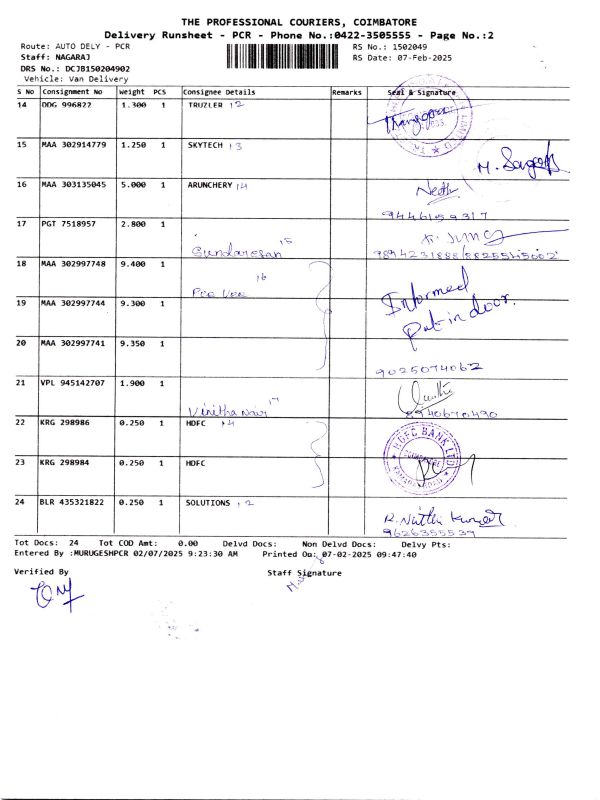 THE PROFESSIONAL COURIERS, COIMBATORE
Delivery Runsheet - PCR - Phone No.:0422-3505555 - Page No.:2
Route: AUTO DELY - PCR RS No.: 1502049
Staff: NAGARAJ RS Date: 07-Feb-2025
DRS No.: DCJB150204902
Vehicle: Van Delivery
S No Consignment No Weight PCS Consignee Details Remarks Seal & Signature
14 DDG 996822 1.300 1 TRUZLER 12
15 MAA 302914779 1.250 1 SKYTECH 13
16 MAA 303135045 5.000 1 ARUNCHERY 14
9446159317
17 PGT 7518957 2.800 1 Sundaresan 15
9894231888/8825545002
18 MAA 302997748 9.400 1 16
Informed
Put-in door.
19 MAA 302997744 9.300 1
20 MAA 302997741 9.350 1
9025074062
21 VPL 945142707 1.900 1 Vinitha Nair 17
22 KRG 298986 0.250 1 HDFC
HDFC BANK LTD
23 KRG 298984 0.250 1 HDFC
24 BLR 435321822 0.250 1 SOLUTIONS 12
R. Nithi Kumar
9626355537
Tot Docs: 24 Tot COD Amt: 0.00 Delvd Docs: Non Delvd Docs: Delvy Pts:
Entered By :MURUGESHPCR 02/07/2025 9:23:30 AM Printed On: 07-02-2025 09:47:40
Verified By Staff Signature